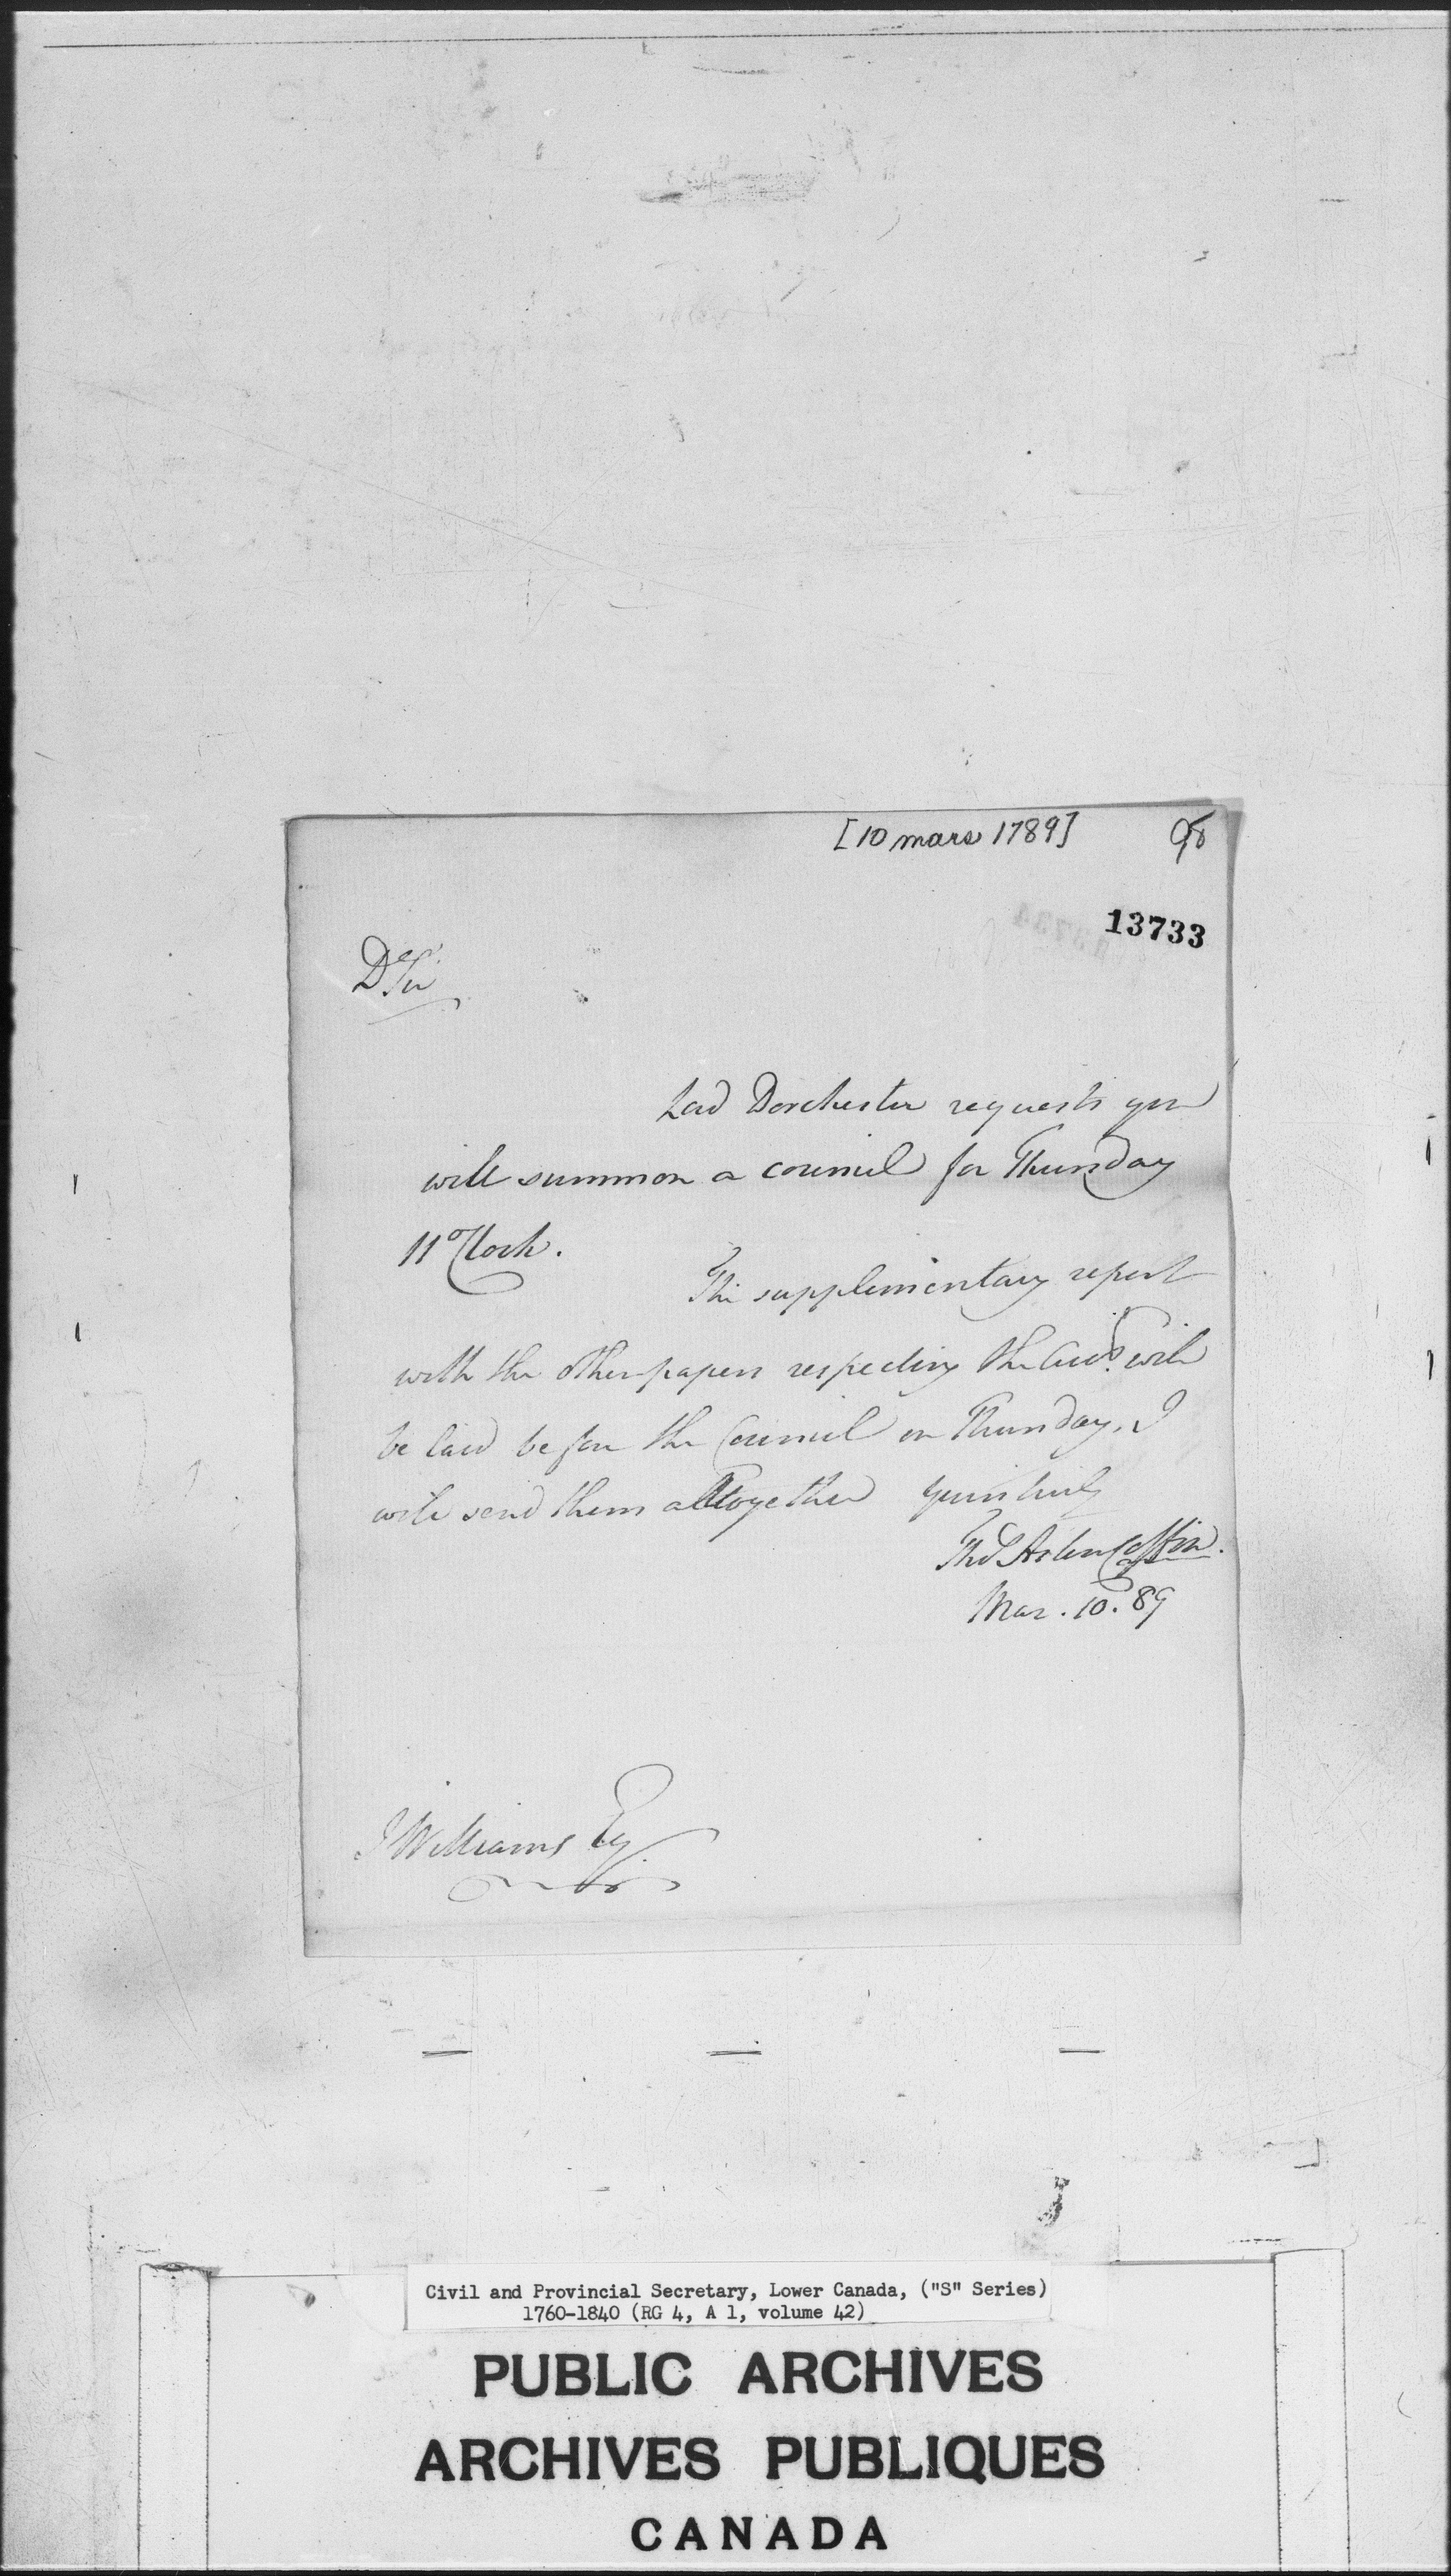 [10 mars 1789]
98
13733
Dr Sir
Lord Dorchester requests you
will summon a council for Thursday
11 oClock.
The supplementary report
with the other papers respecting the will
be laid before the Council on Thursday. I
will send them alltogether yours truly
Thos Aston Coffin.
Mar. 10. 89
J Williams Esq
Civil and Provincial Secretary, Lower Canada, ("S" Series)
1760-1840 (RG 4, A 1, volume 42)
PUBLIC ARCHIVES
ARCHIVES PUBLIQUES
CANADA